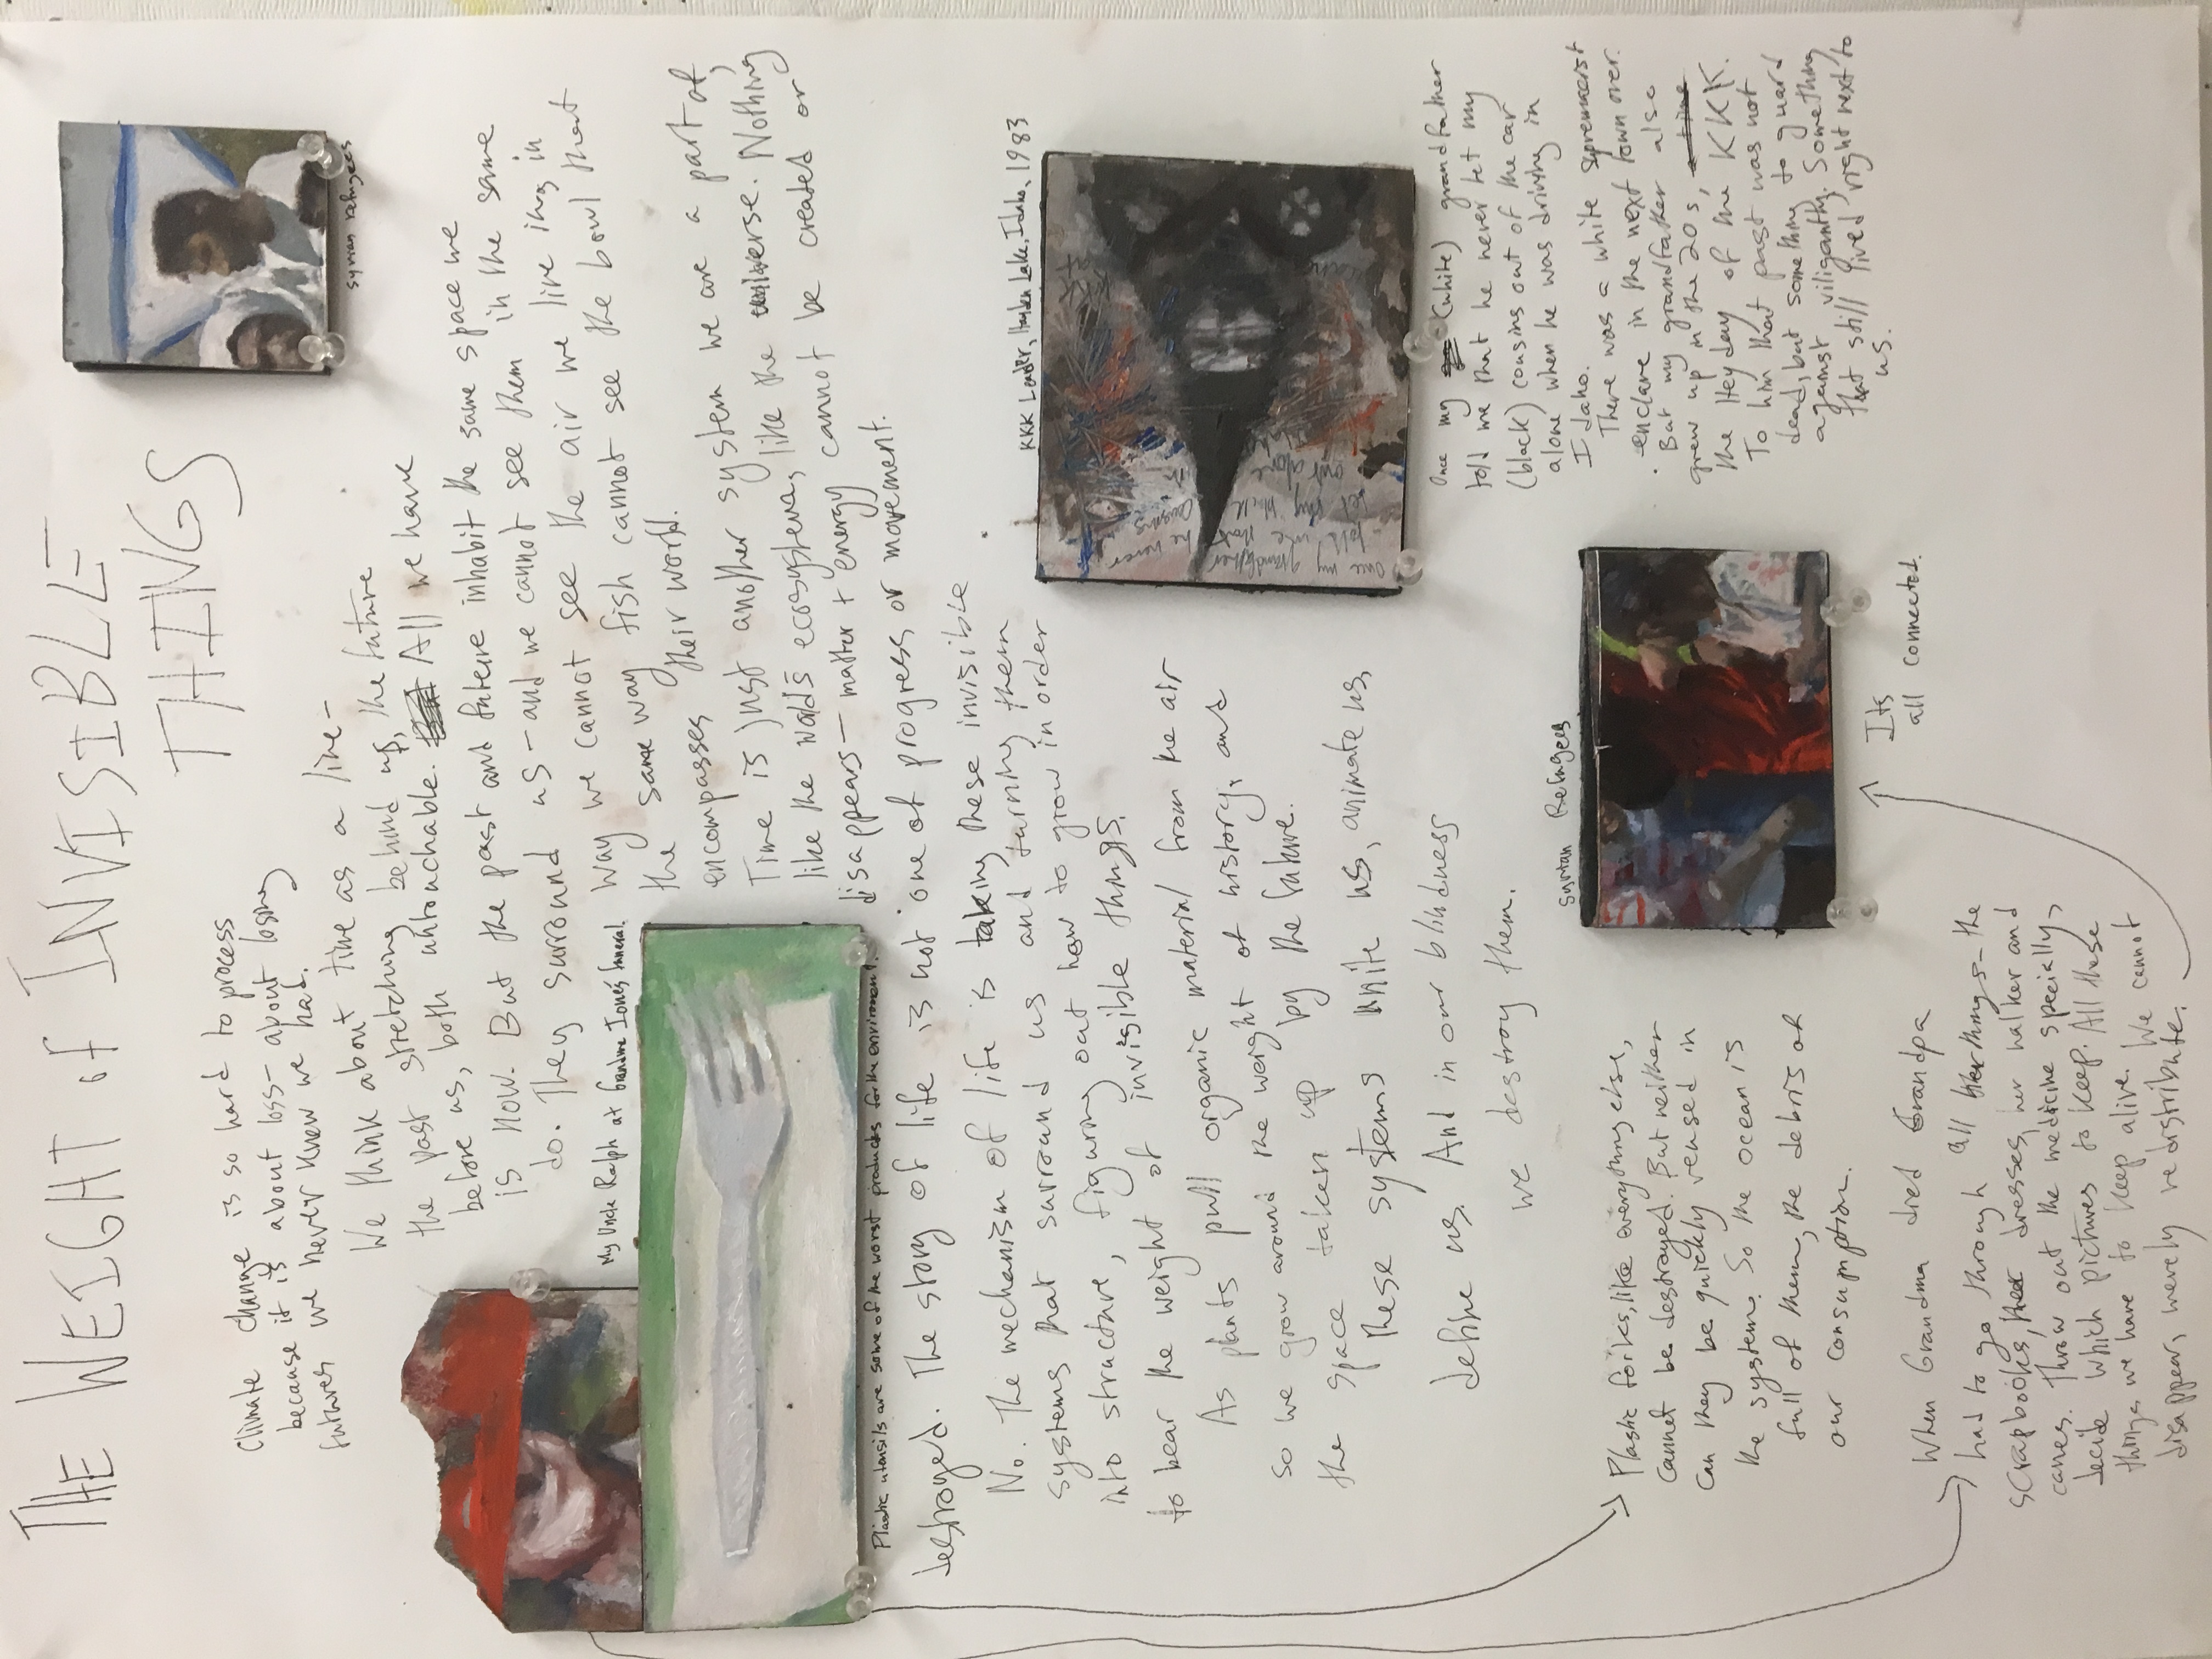 THE WEIGHT of INVISIBLE
THINGS
Climate change is so hard to process
because it is about loss- about losing
futures we never knew we had.
We think about time as a line-
the past stretching behind us, the future
before us, both untouchable. All we have
is now. But the past and future inhabit the same space we
do. They surround us - and we cannot see them in the same
way we cannot see the air we live in, in
the same way fish cannot see the bowl that
encompasses their world.
Time is just another system we are a part of,
like the world's ecosystems, like the universe. Nothing
disappears- matter + energy cannot be created or
destroyed. The story of life is not one of progress or movement.
No. The mechanism of life is taking these invisible
systems that surround us and turning them
into structure, figuring out how to grow in order
to bear the weight of invisible things.
As plants pull organic material from the air
so we grow around the weight of history, and
the space taken up by the future.
These systems unite us, animate us,
define us. And in our blindness
we destroy them.
Syrian refugees
My Uncle Ralph at Grandma Ione's funeral.
Plastic utensils are some of the worst products for the enviroment.
KKK Leader, Hayden Lake, Idaho, 1983
Once my grandfather
told me that he never
let my black cousins
out alone in
Idaho
KKK
Once my (white) grandfather
told me that he never let my
(black) cousins out of the car
alone when he was driving in
Idaho.
There was a white supremacist
enclave in the next town over.
But my grandfather also
grew up in the 20s,
the Heyday of the KKK.
To him that past was not
dead, but something to guard
against viligantly. Something
that still lived right next to
us.
Syrian Refugees
Its
all connected.
Plastic forks, like everything else,
cannot be destroyed. But neither
can they be quickly reused in
the system. So the ocean is
full of them, the debris of
our consumption.
When Grandma died Grandpa
had to go through all her things- the
scrapbooks, her dresses, her walker and
canes. Throw out the medicine specially,
decide which pictures to keep. All these
things we have to keep alive. We cannot
disappear, merely redistribute.